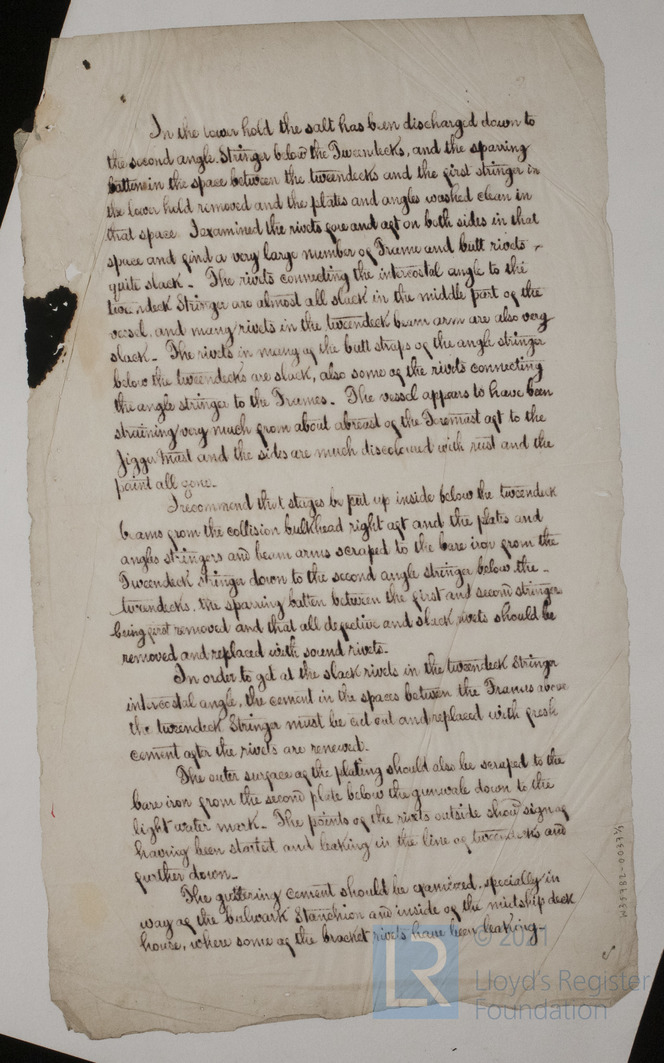 In the lower hold the salt has been discharged down to
the second angle Stringer below the Tweendecks, and the sparring
battens in the space between the tweendecks and the first stringer in
the lower hold removed and the plates and angles washed clean in
that space. I examined the rivets fore and aft on both sides in that
space and find a very large number of Frame and butt rivets
quite slack - The rivets connecting the intercostal angle to the
tweendeck Stringer are almost all slack in the middle part of the
vessel, and many rivets in the tweendeck beam arm are also very
slack - The rivets in many of the butt straps of the angle stringer
below the tweendecks are slack, also some of the rivets connecting
the angle stringer to the Frames. The vessel appears to have been
straining very much from about abreast of the Foremast aft to the
Jigger Mast and the sides are much discoloured with rust and the
paint all gone.
I recommend that stages be put up inside below the tweendeck
beams from the collision bulkhead right aft and the plates and
angles stringers and beam arms scraped to the bare iron from the
Tweendeck stringer down to the second angle stringer below the
tweendecks, the sparring batten between the first and second stringer
being first removed and that all defective and slack rivets should be
removed and replaced with sound rivets.
In order to get at the slack rivets in the tweendeck Stringer
intercostal angle, the cement in the spaces between the Frames above
the tweendeck Stringer must be cut out and replaced with fresh
cement after the rivets are renewed.
The outer surface of the plating should also be scraped to the
bare iron from the second plate below the gunwale down to the
light water mark. The points of the rivets outside show sign of
having been started and leaking in the line of tweendecks and
further down.
The guttering cement should be examined, specially in
way of the bulwark Stanchion and inside of the midship deck
house, where some of the bracket rivets have been leaking.
W35782-0037 1/2
© 2021
LR
Lloyd's Register
Foundation